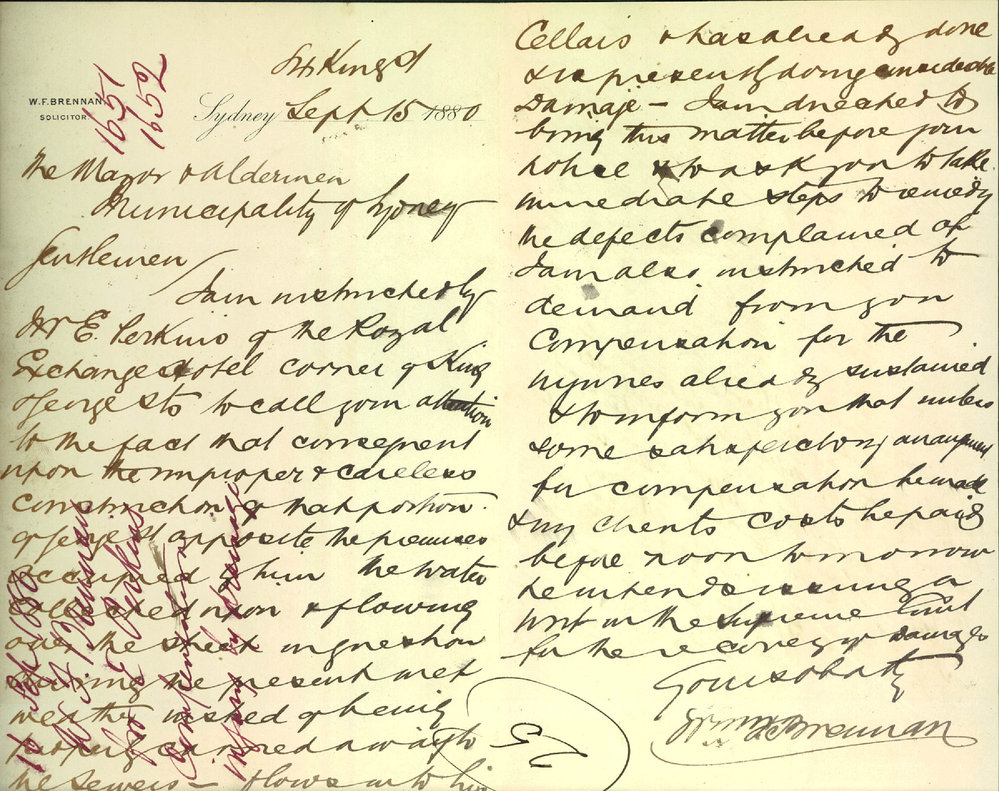 W.F. BRENNAN
SOLICITOR.
1651
1652
84 King St
Sydney Sept 15 1880
The Mayor & Aldermen
Municipality of Sydney
Gentlemen
I am instructed by
Mr E. Perkins of the Royal
Exchange Hotel corner of King
& George Sts to call your attention
to the fact that consequent
upon the improper & careless
construction of that portion
of George St opposite the premises
occupied by him the water
collected upon & flowing
over the street in question
during the present wet
weather instead of being
properly carried away to
the sewers – flows into his
Cellars & has already done
& is presently doing considerable
Damage – I am directed to
bring this matter before your
notice & to ask you to take
immediate steps to remedy
the defects complained of
I am also instructed to
demand from you
Compensation for the
injuries already sustained
& to inform you that unless
some satisfactory arrangement
for compensation be made
& my clients costs be paid
before noon tomorrow
he intends issuing a
writ in the Supreme Court
for the recovery of Damages
Yours obdtly
Brennan
15 Sept 80
W. F. Brennan
for E. Perkins
Compensation
injury by drainage